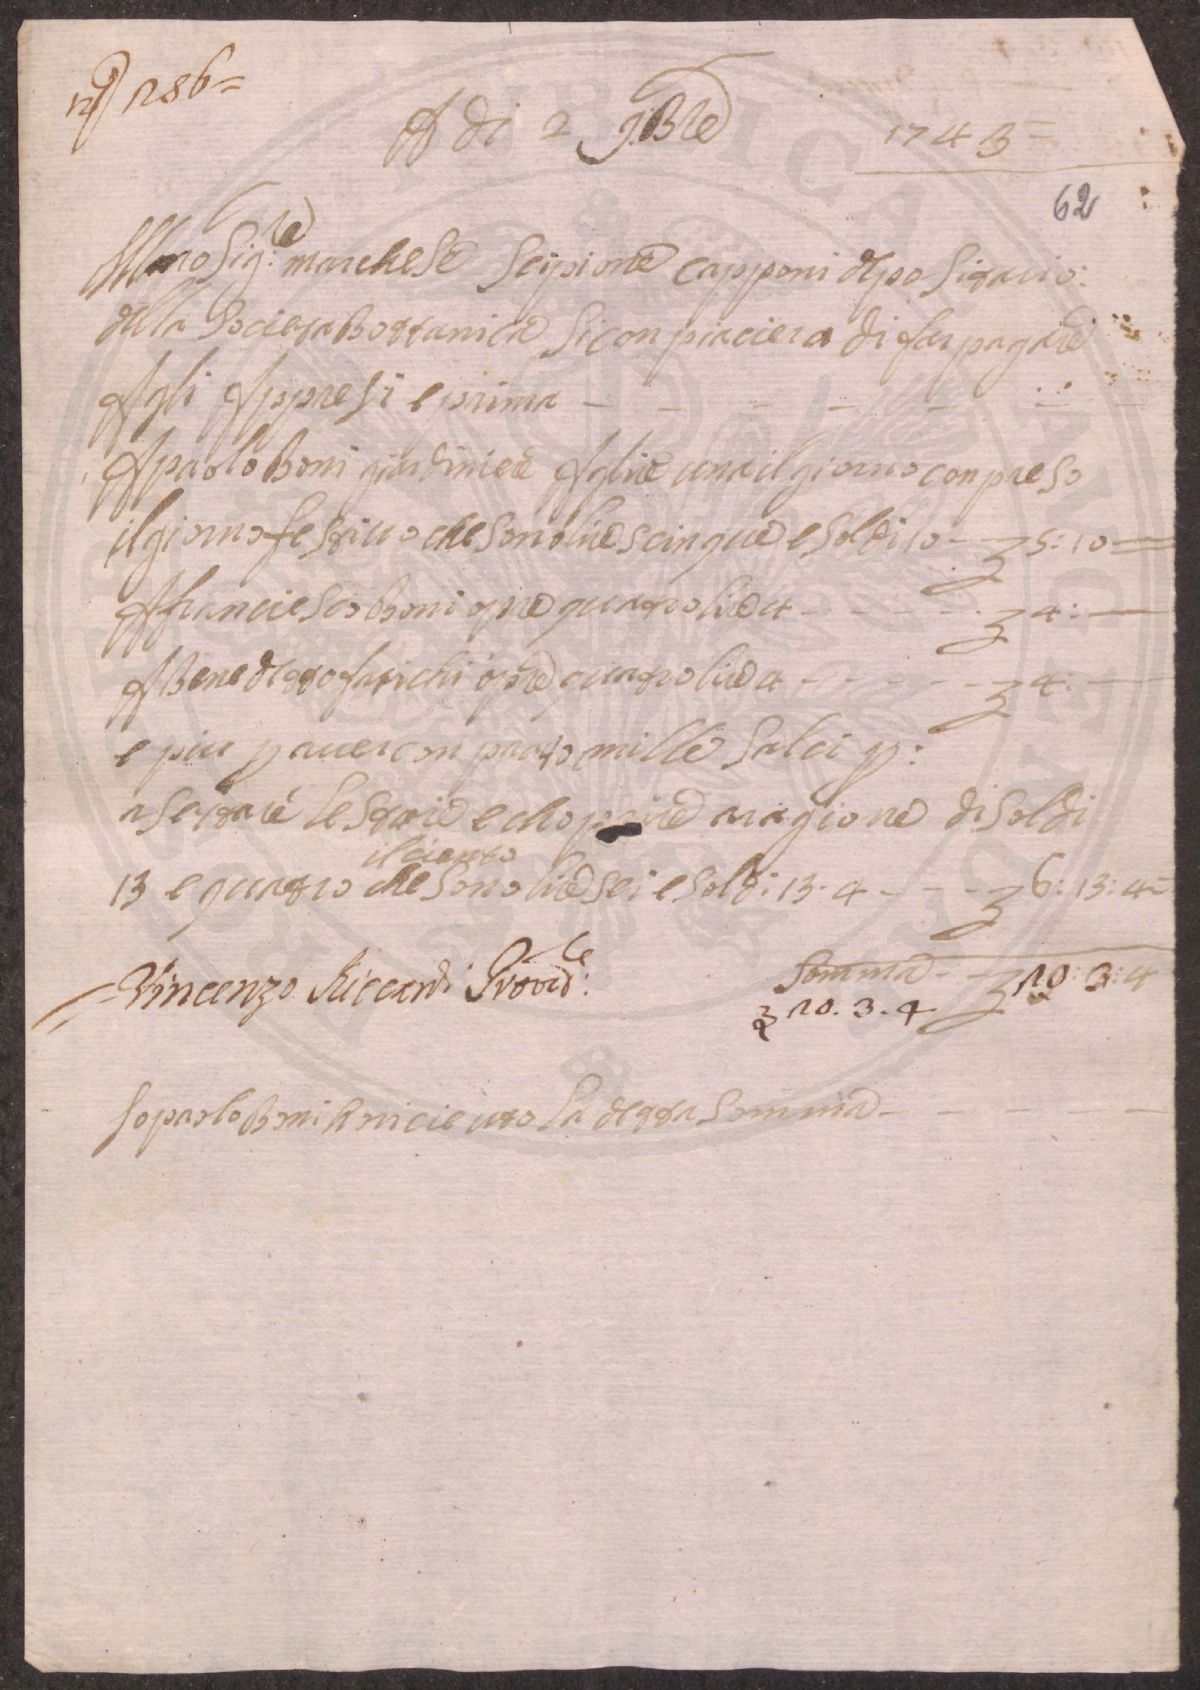 N° 286=
A di 2 9:Bre 1743=
62
Ill.mo Sig.re marchese Scipione Capponi depositario:
della Societa Bottanica si conpiaciera di far pagare
Agli Appresi e prima - - - - - -
A paolo Boni giardiniere A lire una il giorno conpreso
il giorno festiuo che sono lire cinque e soldi 10 - £ 5: 10
A franciesco Boni opre quatro lire 4 - - - - - £ 4: -
A Benedetto farichi opre quatro lire 4 - - - - - £ 4: -
e piu p auer conprato mille Salci p:
a legare le Spaliere ragione di soldi
il ciento
13 e quatro che sono lire sei e soldi 13. 4 - - - £ 6: 13: 4=
Vincenzo Riccardi Provid.re: Somma - £ 20: 3: 4
£ 20. 3. 4
Io paolo Boni o riceuto la detta Somma - - - - -